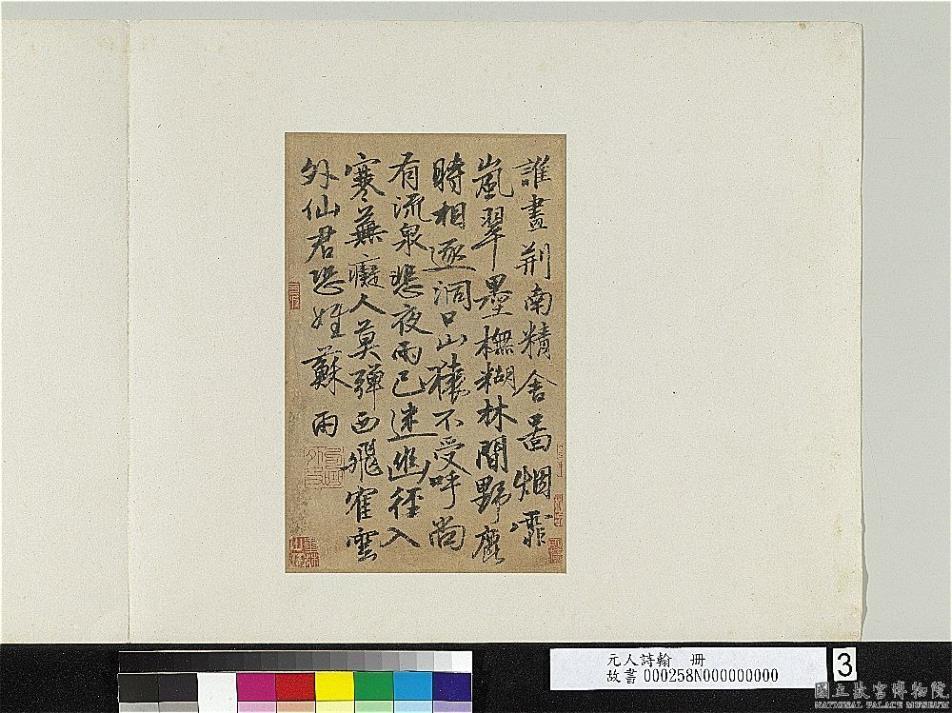 誰畫荆南精舍圖烟霏
嵐翠墨模糊林間野鹿
時相逐洞口山猿不受呼尚
有流泉悲夜雨已迷幽徑入
寒蕪癡人莫彈西飛隺雲
外仙君恐姓蘇雨
元人詩翰 冊
故書 000258N000000000
3
國立故宮博物院
NATIONAL PALACE MUSEUM